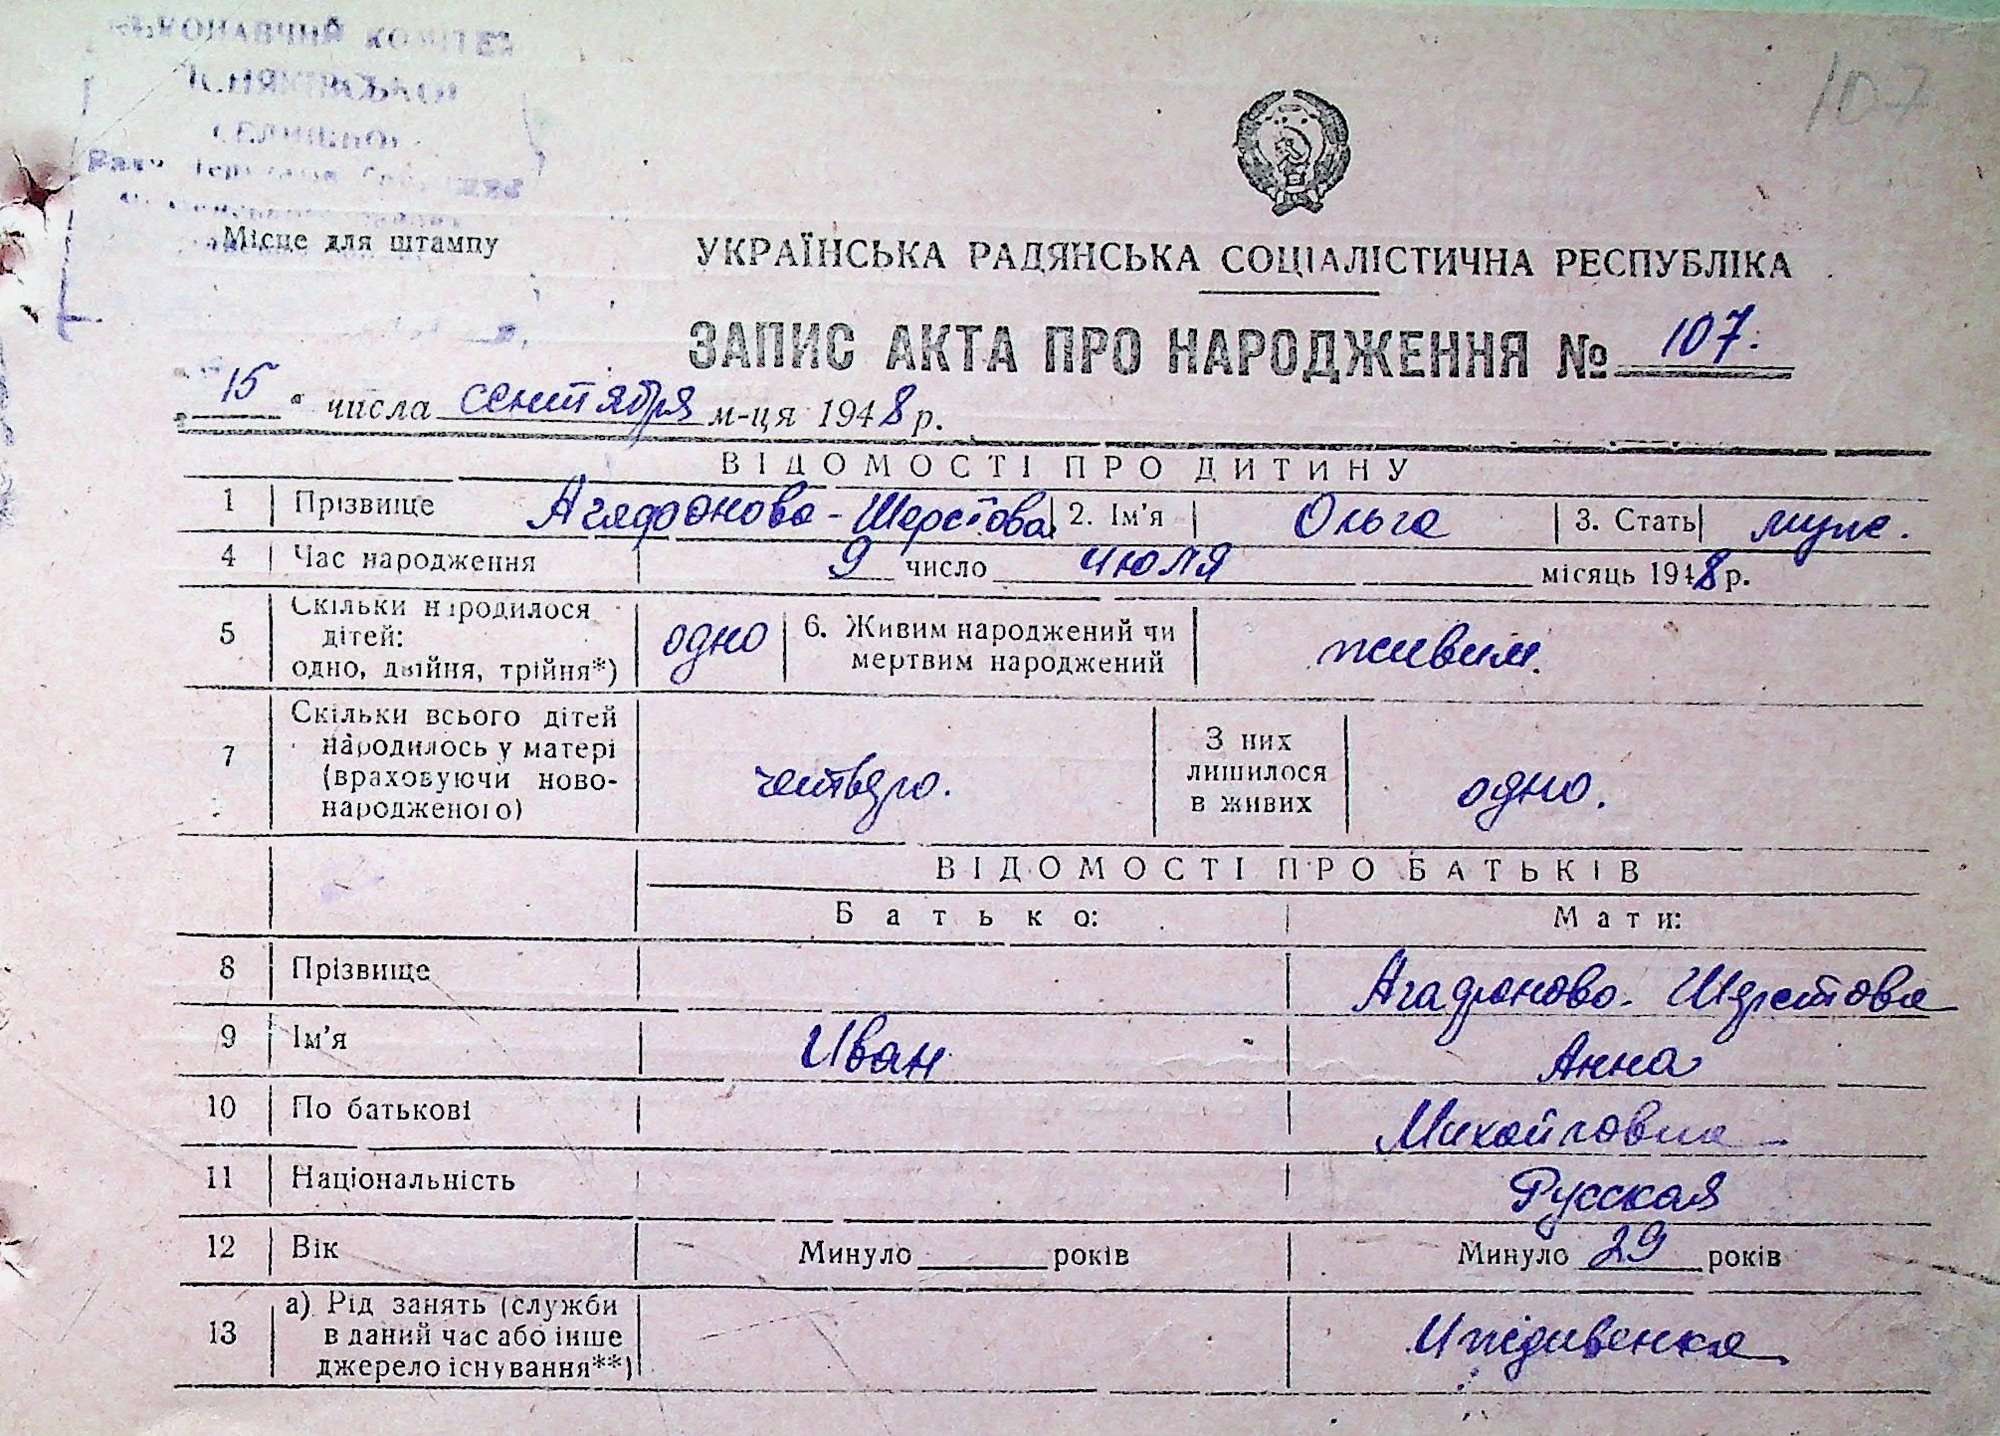 107
КОНАВЧИЙ КОМІТЕТ
Місце для штампу
УКРАЇНСЬКА РАДЯНСЬКА СОЦІАЛІСТИЧНА РЕСПУБЛІКА
ЗАПИС АКТА ПРО НАРОДЖЕННЯ № 107.
„ 15 “ числа сентября м-ця 1948 р.
ВІДОМОСТІ ПРО ДИТИНУ
1 Прізвище Агафонова-Шерстова 2. Ім'я Ольга 3. Стать муж.
4 Час народження 9 число июля місяць 1948 р.
5 Скільки народилося
дітей:
одно, двійня, трійня*) одно 6. Живим народжений чи
мертвим народжений живим.
7 Скільки всього дітей
народилось у матері
(враховуючи ново-
народженого) четверо. З них
лишилося
в живих одно.
ВІДОМОСТІ ПРО БАТЬКІВ
Батько: Мати:
8 Прізвище Агафоново-Шерстова
9 Ім'я Иван Анна
10 По батькові Михайловна
11 Національність Русская
12 Вік Минуло років Минуло 29 років
13 а) Рід занять (служби
в даний час або інше
джерело існування**) Иждивенка